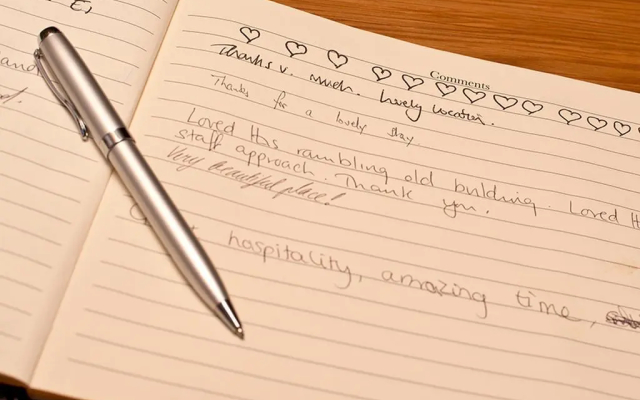 E,
and
Comments
Thanks v. much. lovely location.
Thanks for a lovely stay.
Loved this rambling old building. Loved
staff approach. Thank you.
Very beautiful place!
hospitality, amazing time,